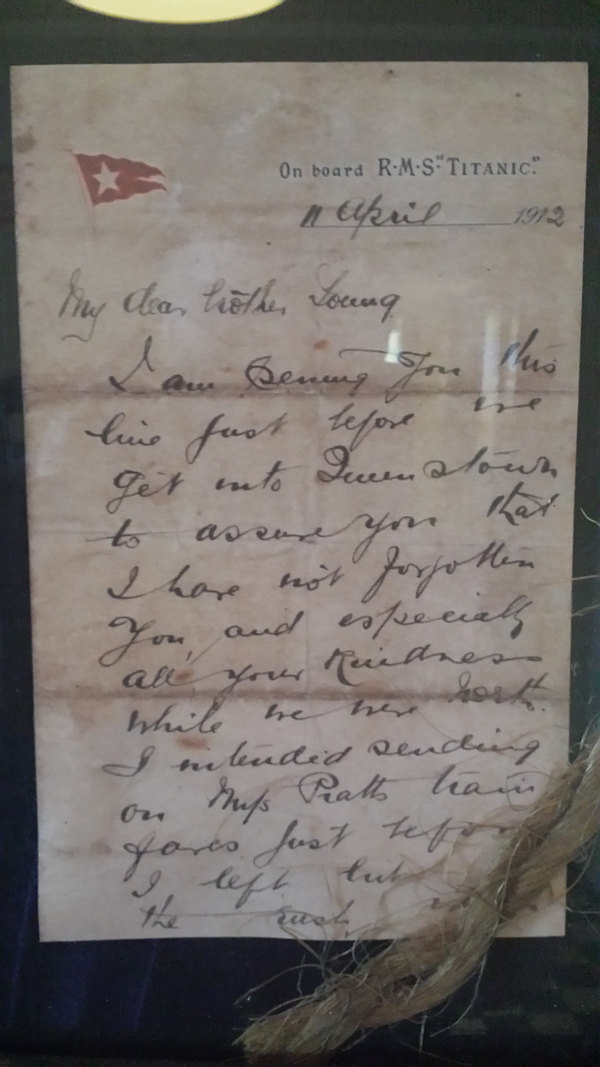 On board R·M·S· "TITANIC."
11 April 1912
My dear brother Young
I am penning you this
line just before we
get into Queenstown
to assure you that
I have not forgotten
You, and especially
all your kindness
while we were North.
I intended sending
on Miss Pratts train
fares just before
I left but
the rush